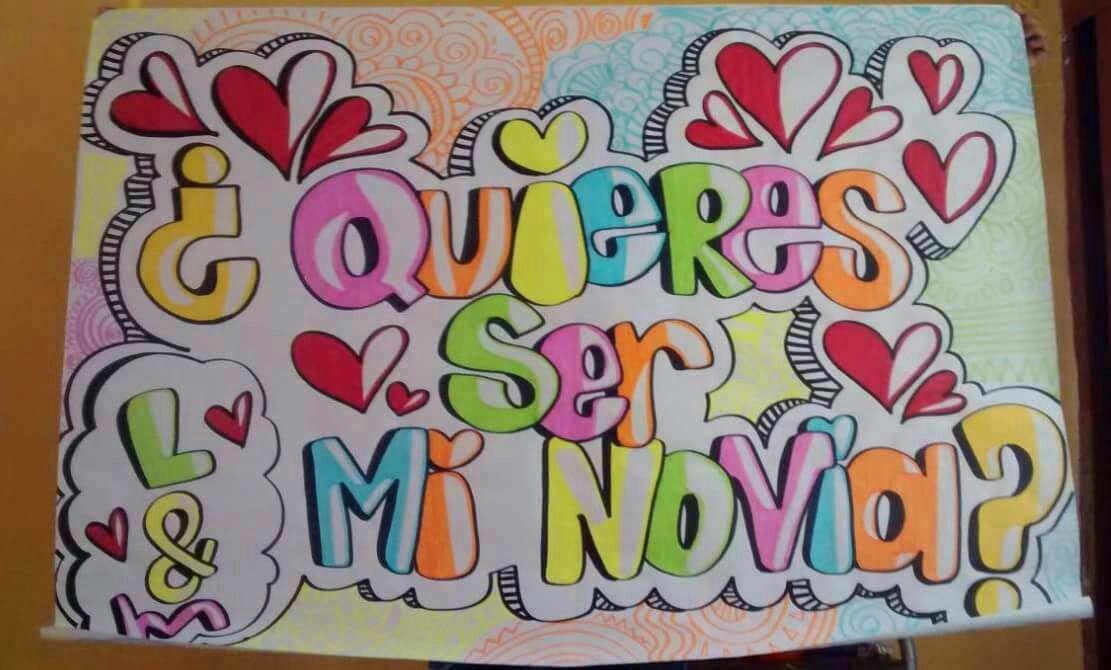 ¿QUIERES
Ser
Mi NOViA?
L
&
M